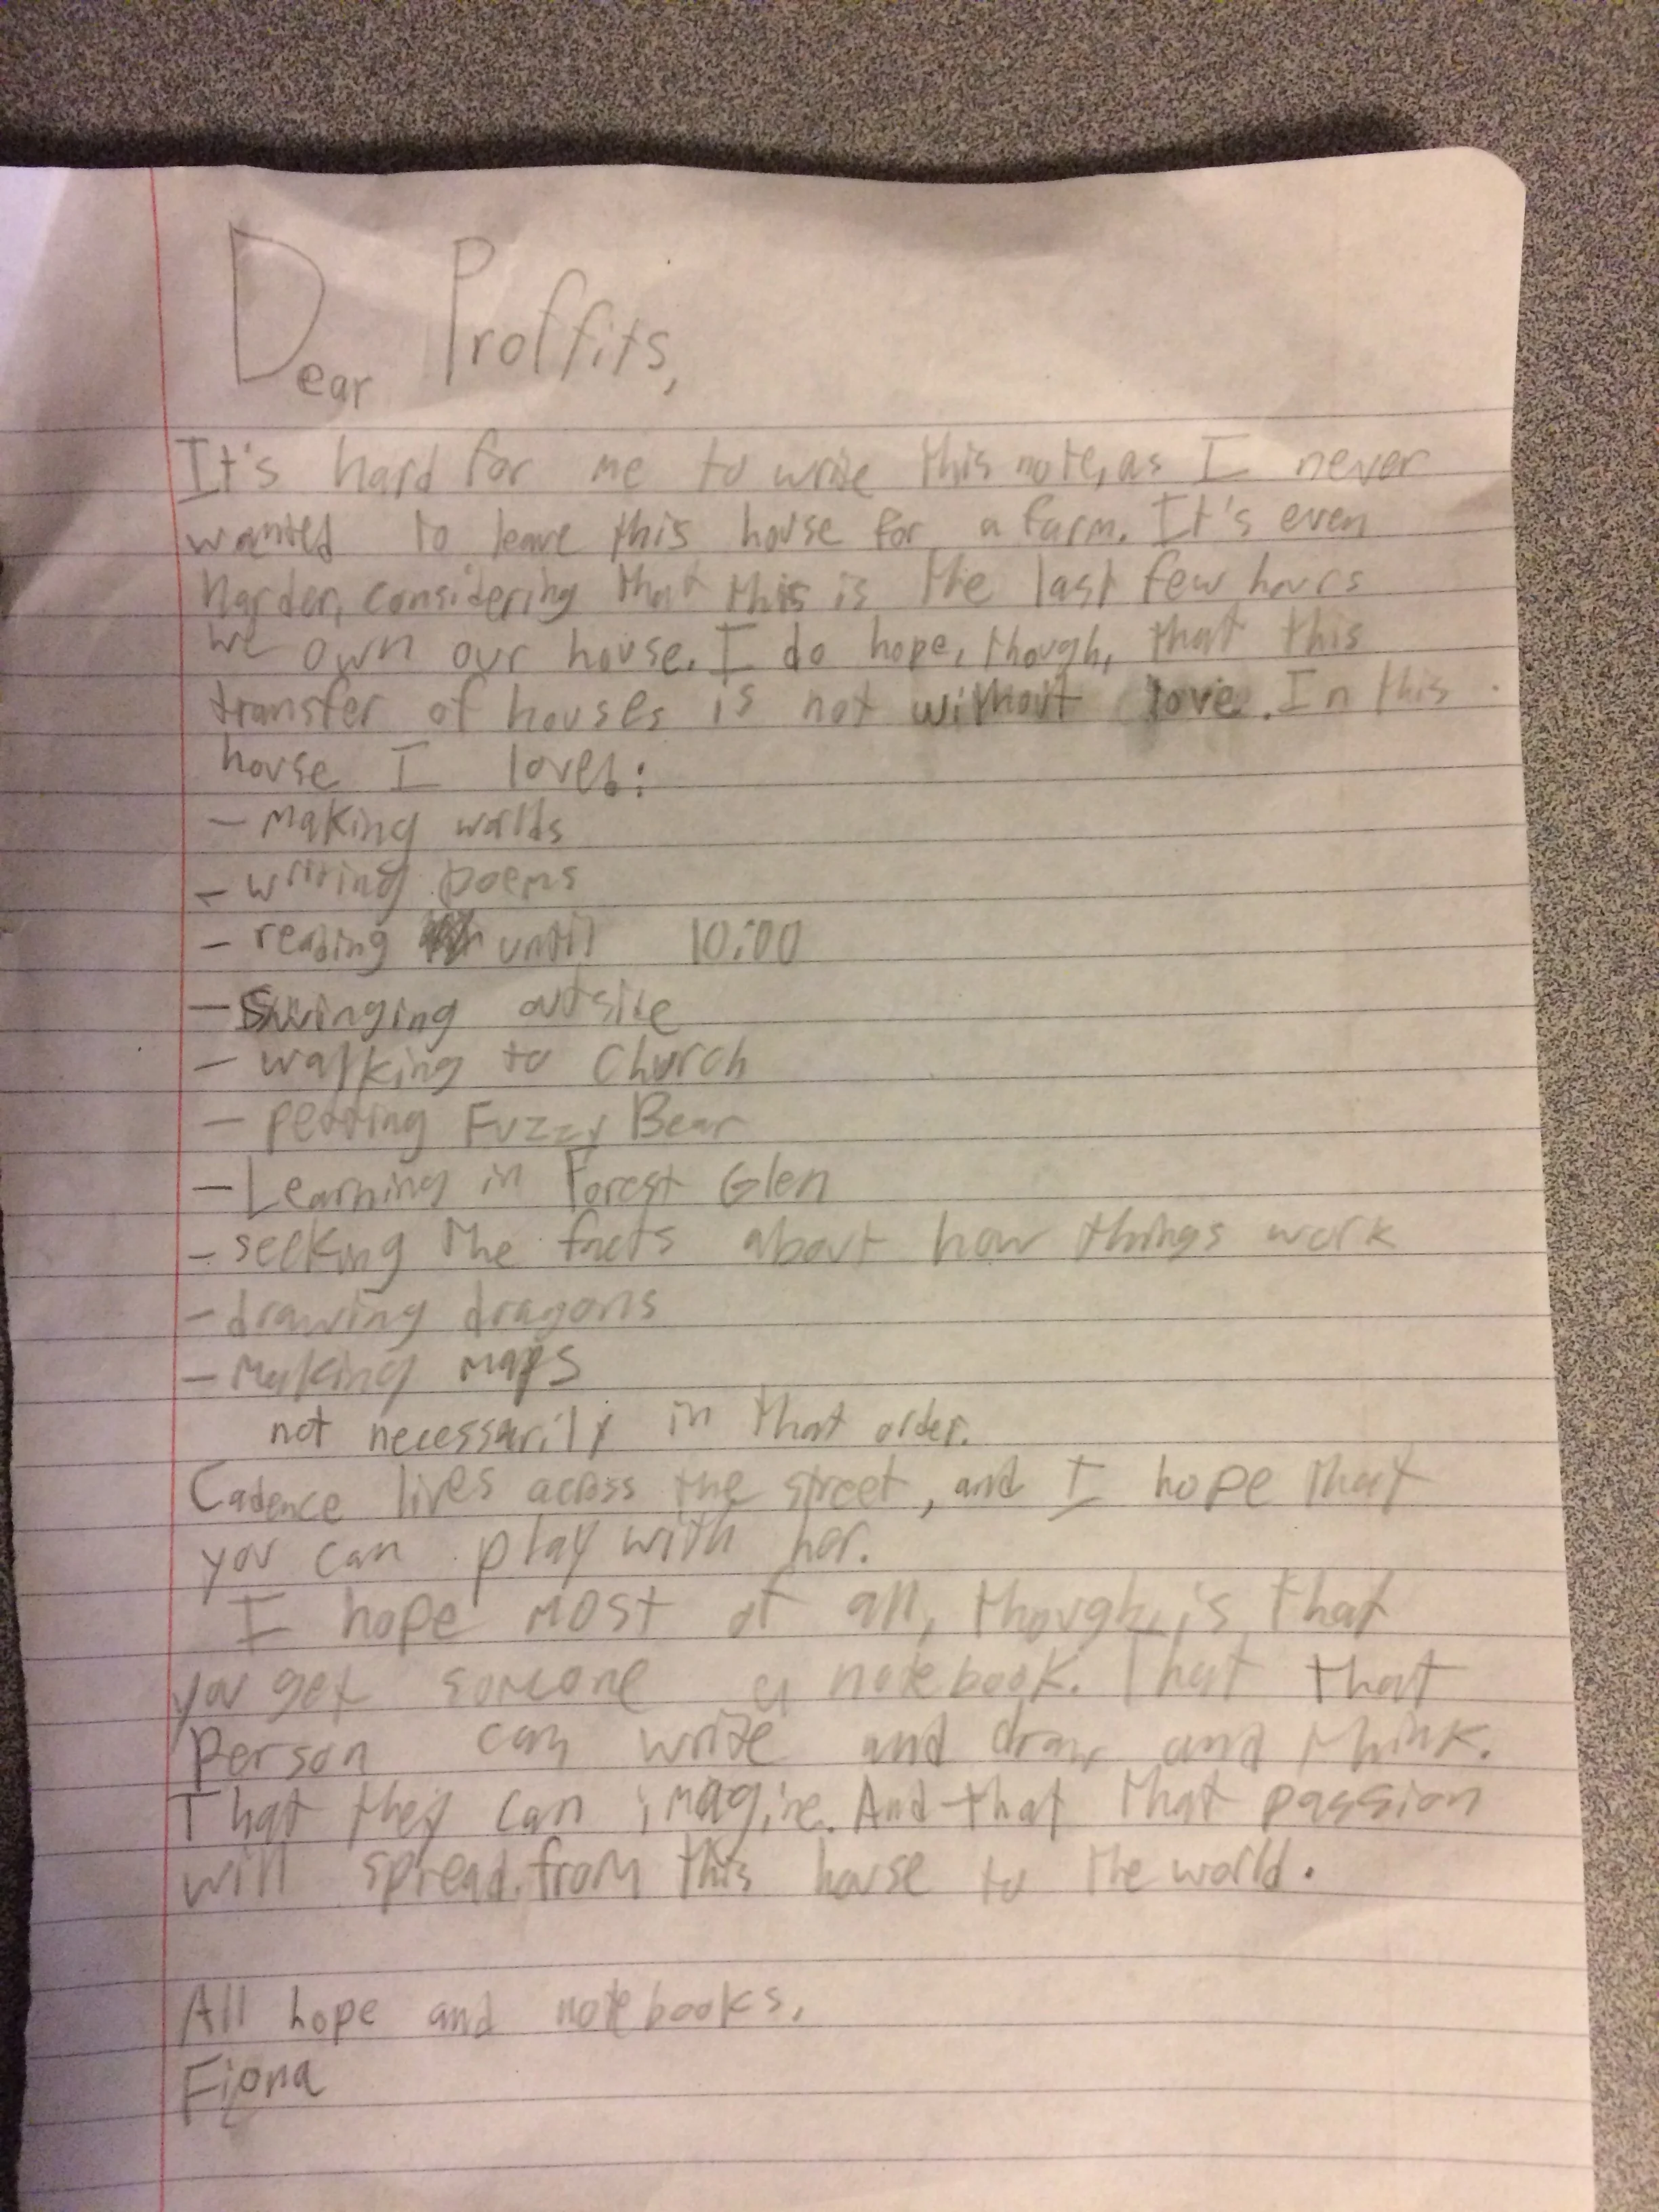 Dear Proffits,
It's hard for me to write this note, as I never
wanted to leave this house for a farm. It's even
harder, considering that this is the last few hours
we own our house. I do hope, though, that this
transfer of houses is not without love. In this
house I loved:
- Making worlds
- writing poems
- reading until 10:00
- Swinging outside
- walking to church
- petting Fuzzy Bear
- Learning in Forest Glen
- seeking the facts about how things work
- drawing dragons
- Making maps
not necessarily in that order.
Cadence lives across the street, and I hope that
you can play with her.
I hope most of all, though, is that
you get someone a notebook. That that
person can write and draw and think.
That they can imagine. And that that passion
will spread from this house to the world.
All hope and notebooks,
Fiona